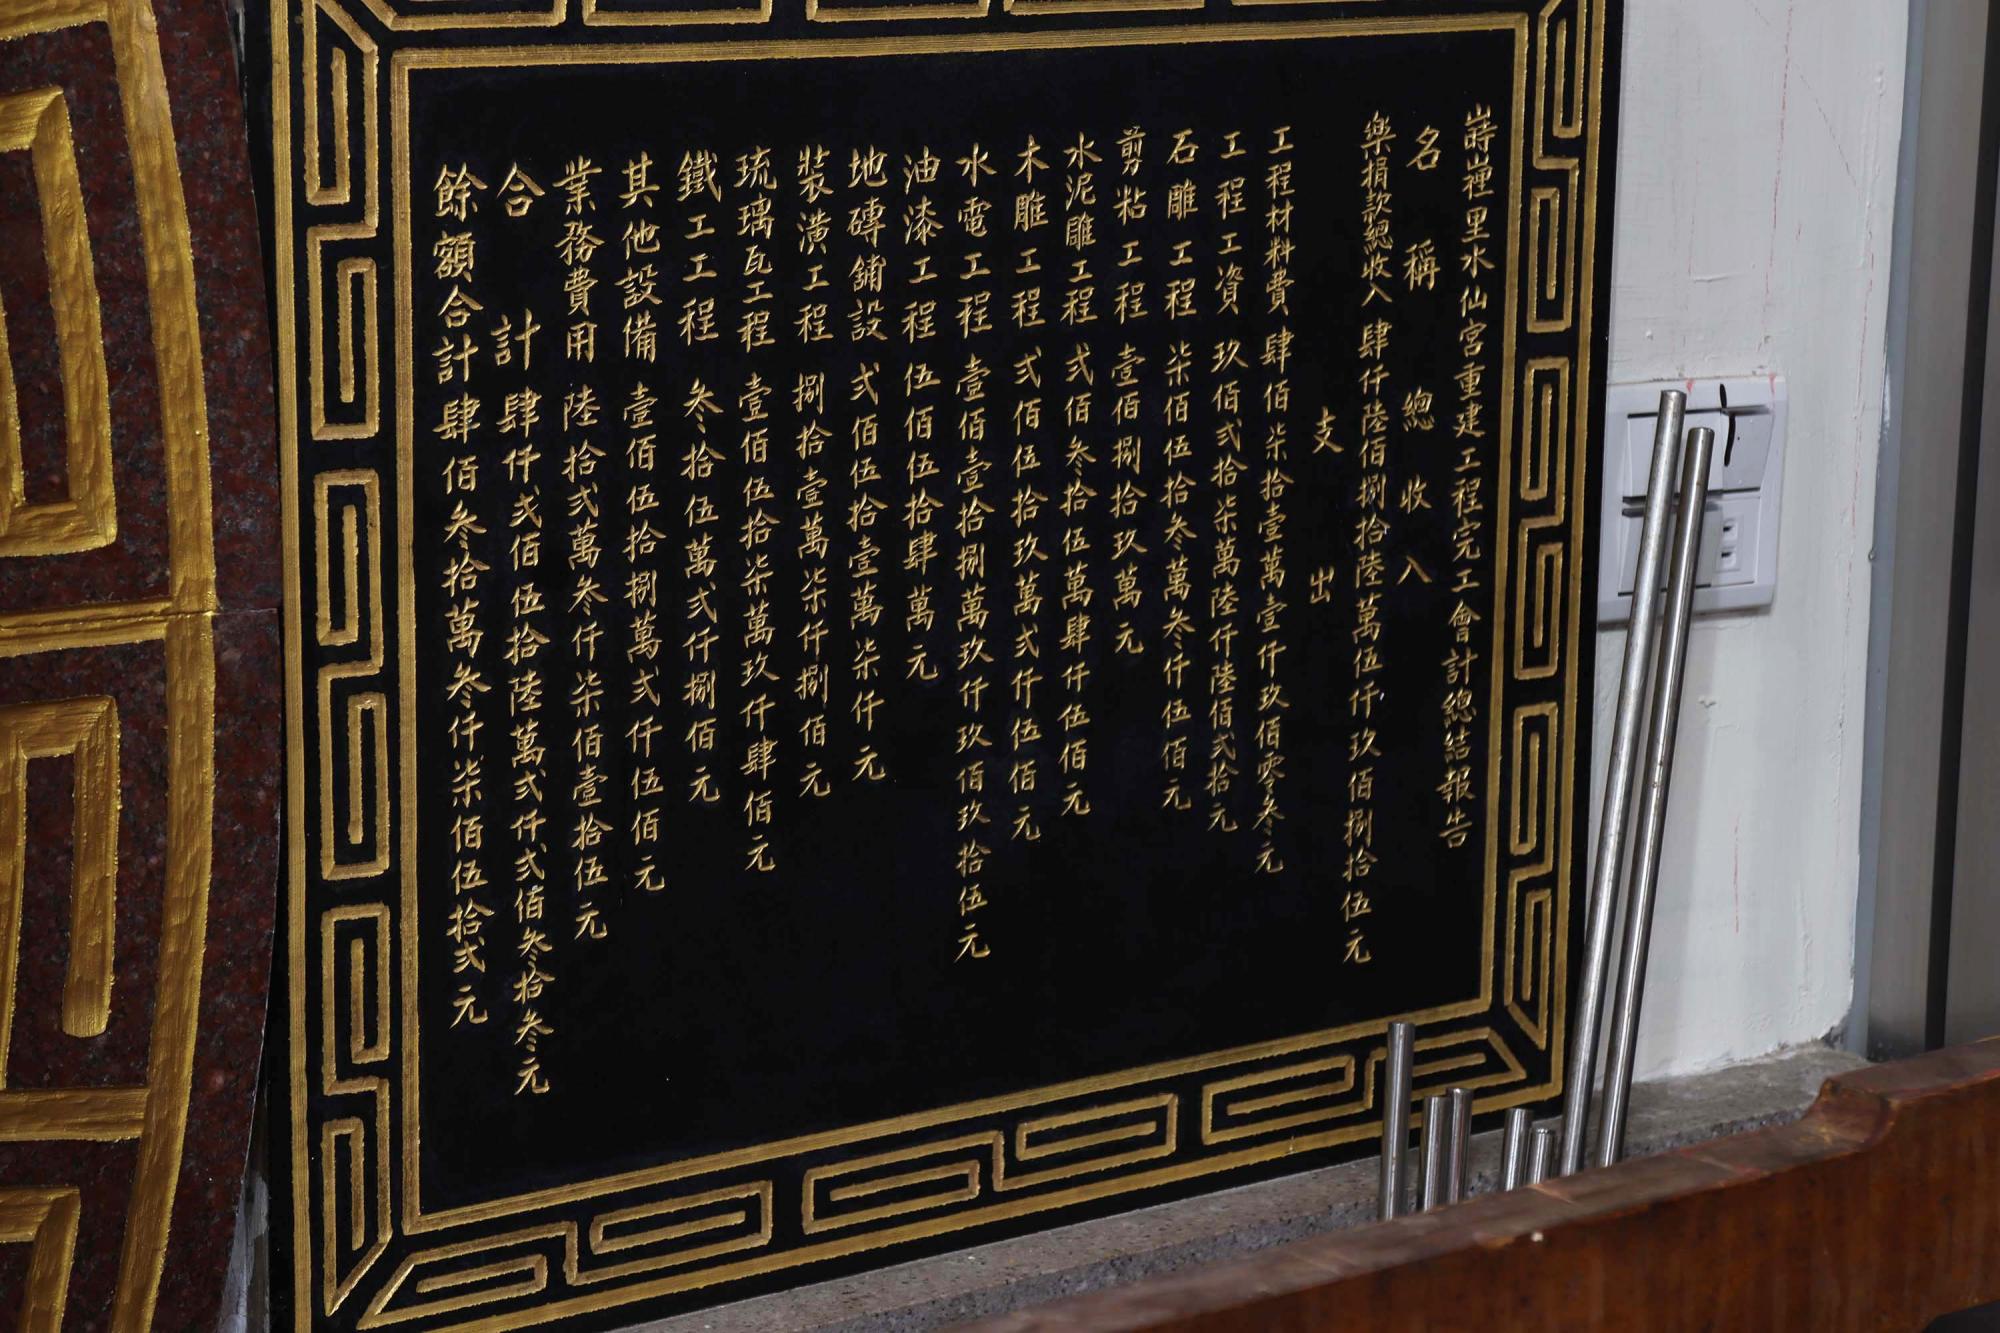 蒔裡里水仙宮重建工程完工會計總結報告
名稱總收入
樂捐款總收入肆仟陸佰捌拾陸萬伍仟玖佰捌拾伍元
支出
工程材料費肆佰柒拾壹萬壹仟玖佰零叁元
工程工資玖佰弍拾柒萬陸仟陸佰弍拾元
石雕工程柒佰伍拾叁萬叁仟伍佰元
剪粘工程壹佰捌拾玖萬元
水泥雕工程弍佰叁拾伍萬肆仟伍佰元
木雕工程弍佰伍拾玖萬弍仟伍佰元
水電工程壹佰壹拾捌萬玖仟玖佰玖拾伍元
油漆工程伍佰伍拾肆萬元
地磚舖設弍佰伍拾壹萬柒仟元
裝潢工程捌拾壹萬柒仟捌佰元
琉璃瓦工程壹佰伍拾柒萬玖仟肆佰元
鐵工工程叁拾伍萬弍仟捌佰元
其他設備壹佰伍拾捌萬弍仟伍佰元
業務費用陸拾弍萬叁仟柒佰壹拾伍元
合計肆仟弍佰伍拾陸萬弍仟弍佰叁拾叁元
餘額合計肆佰叁拾萬叁仟柒佰伍拾弍元